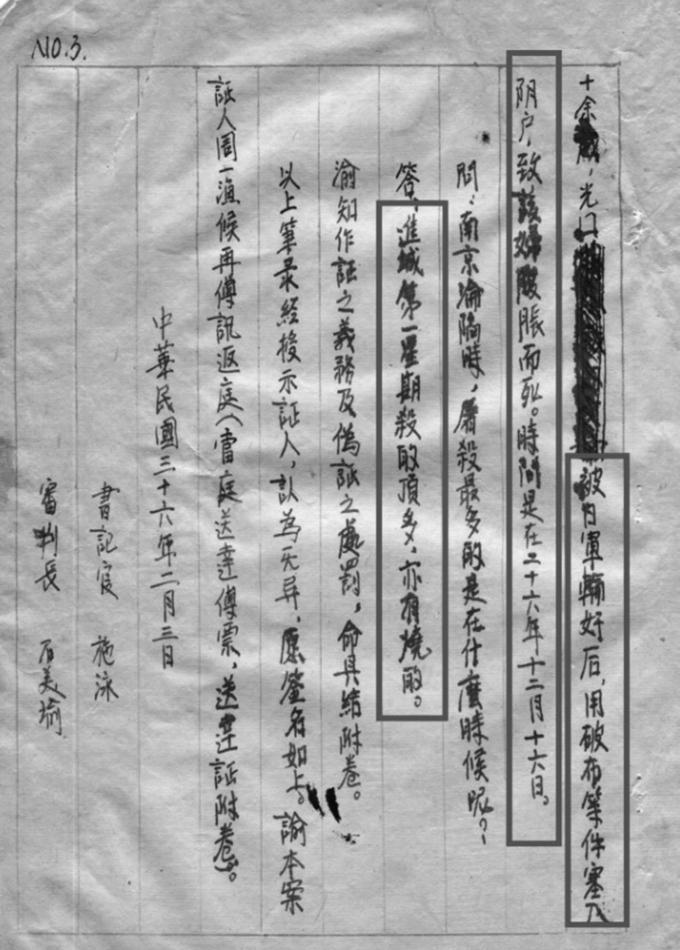 NO.3.
十余歲，光
被日軍輪奸后，用破布等件塞入
阴户，致該婦酸脹而死。時間是在二十六年十二月十六日。
問：南京淪陥時，屠殺最多的是在什麼時候呢？
答：進城第一星期殺的頂多，亦有燒的。
渝知作証之義務及偽証之處罰，命具結附卷。
以上筆录經授示証人，认為无异，愿簽名如上。諭本案
証人周一漁候再傳訊返庭（當庭送達傳票，送達証附卷）。
中華民國三十六年二月三日
書記官 施泳
審判長 石美瑜